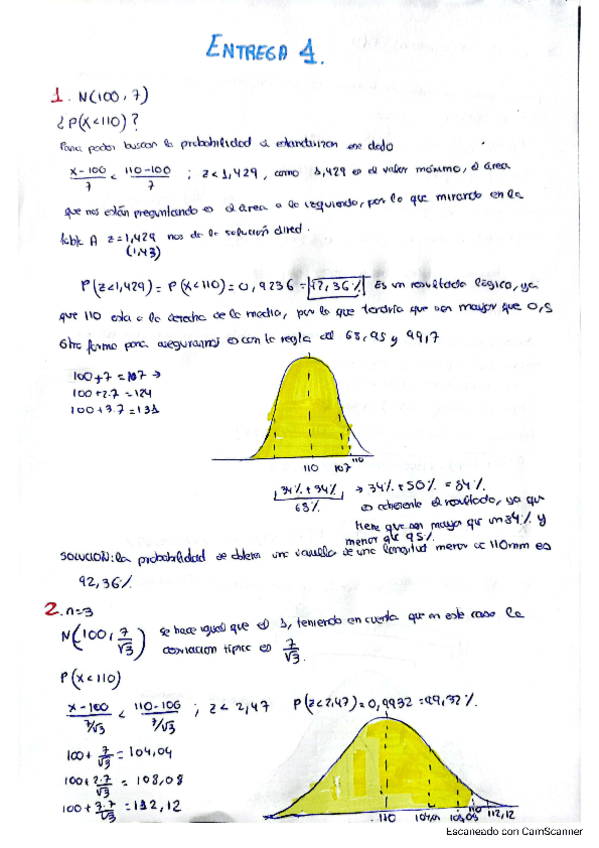 ENTREGA 1.
1. N(100, 7)
¿P(X<110)?
Para poder buscar la probabilidad estandarizan ese dado
x-100/7 < 110-100/7 ; z<1,429, como 1,429 es el valor máximo, el área
que nos están preguntando es el área a la izquierda, por lo que mirando en la
tabla A z=1,429 nos da la solución direct.
(1,43)
P(z<1,429) = P(X<110) = 0,9236 = 92,36% Es un resultado lógico, ya
que 110 esta a la derecha de la media, por lo que tendría que ser mayor que 0,5
Otra forma para asegurarnos es con la regla del 68, 95 y 99,7
100+7 = 107 →
100+2·7 = 124
100+3·7 = 131
110 107 110
34% + 34% → 34% + 50% = 84%
68% es coherente el resultado, ya que
tiene que ser mayor que un 84% y
menor que 95%
SOLUCIÓN: la probabilidad de obtener una varilla de una longitud menor de 110mm es
92,36%
2. n=3
N(100, 7/√3) se hace igual que el 1, teniendo en cuenta que en este caso la
desviación típica es 7/√3.
P(X<110)
x-100/7/√3 < 110-100/7/√3 ; z< 2,47 P(z<2,47) = 0,9932 = 99,32%.
100+ 7/√3 = 104,04
100+ 2·7/√3 = 108,08
100+ 3·7/√3 = 112,12
110 104,04 108,08 110 112,12
Escaneado con CamScanner